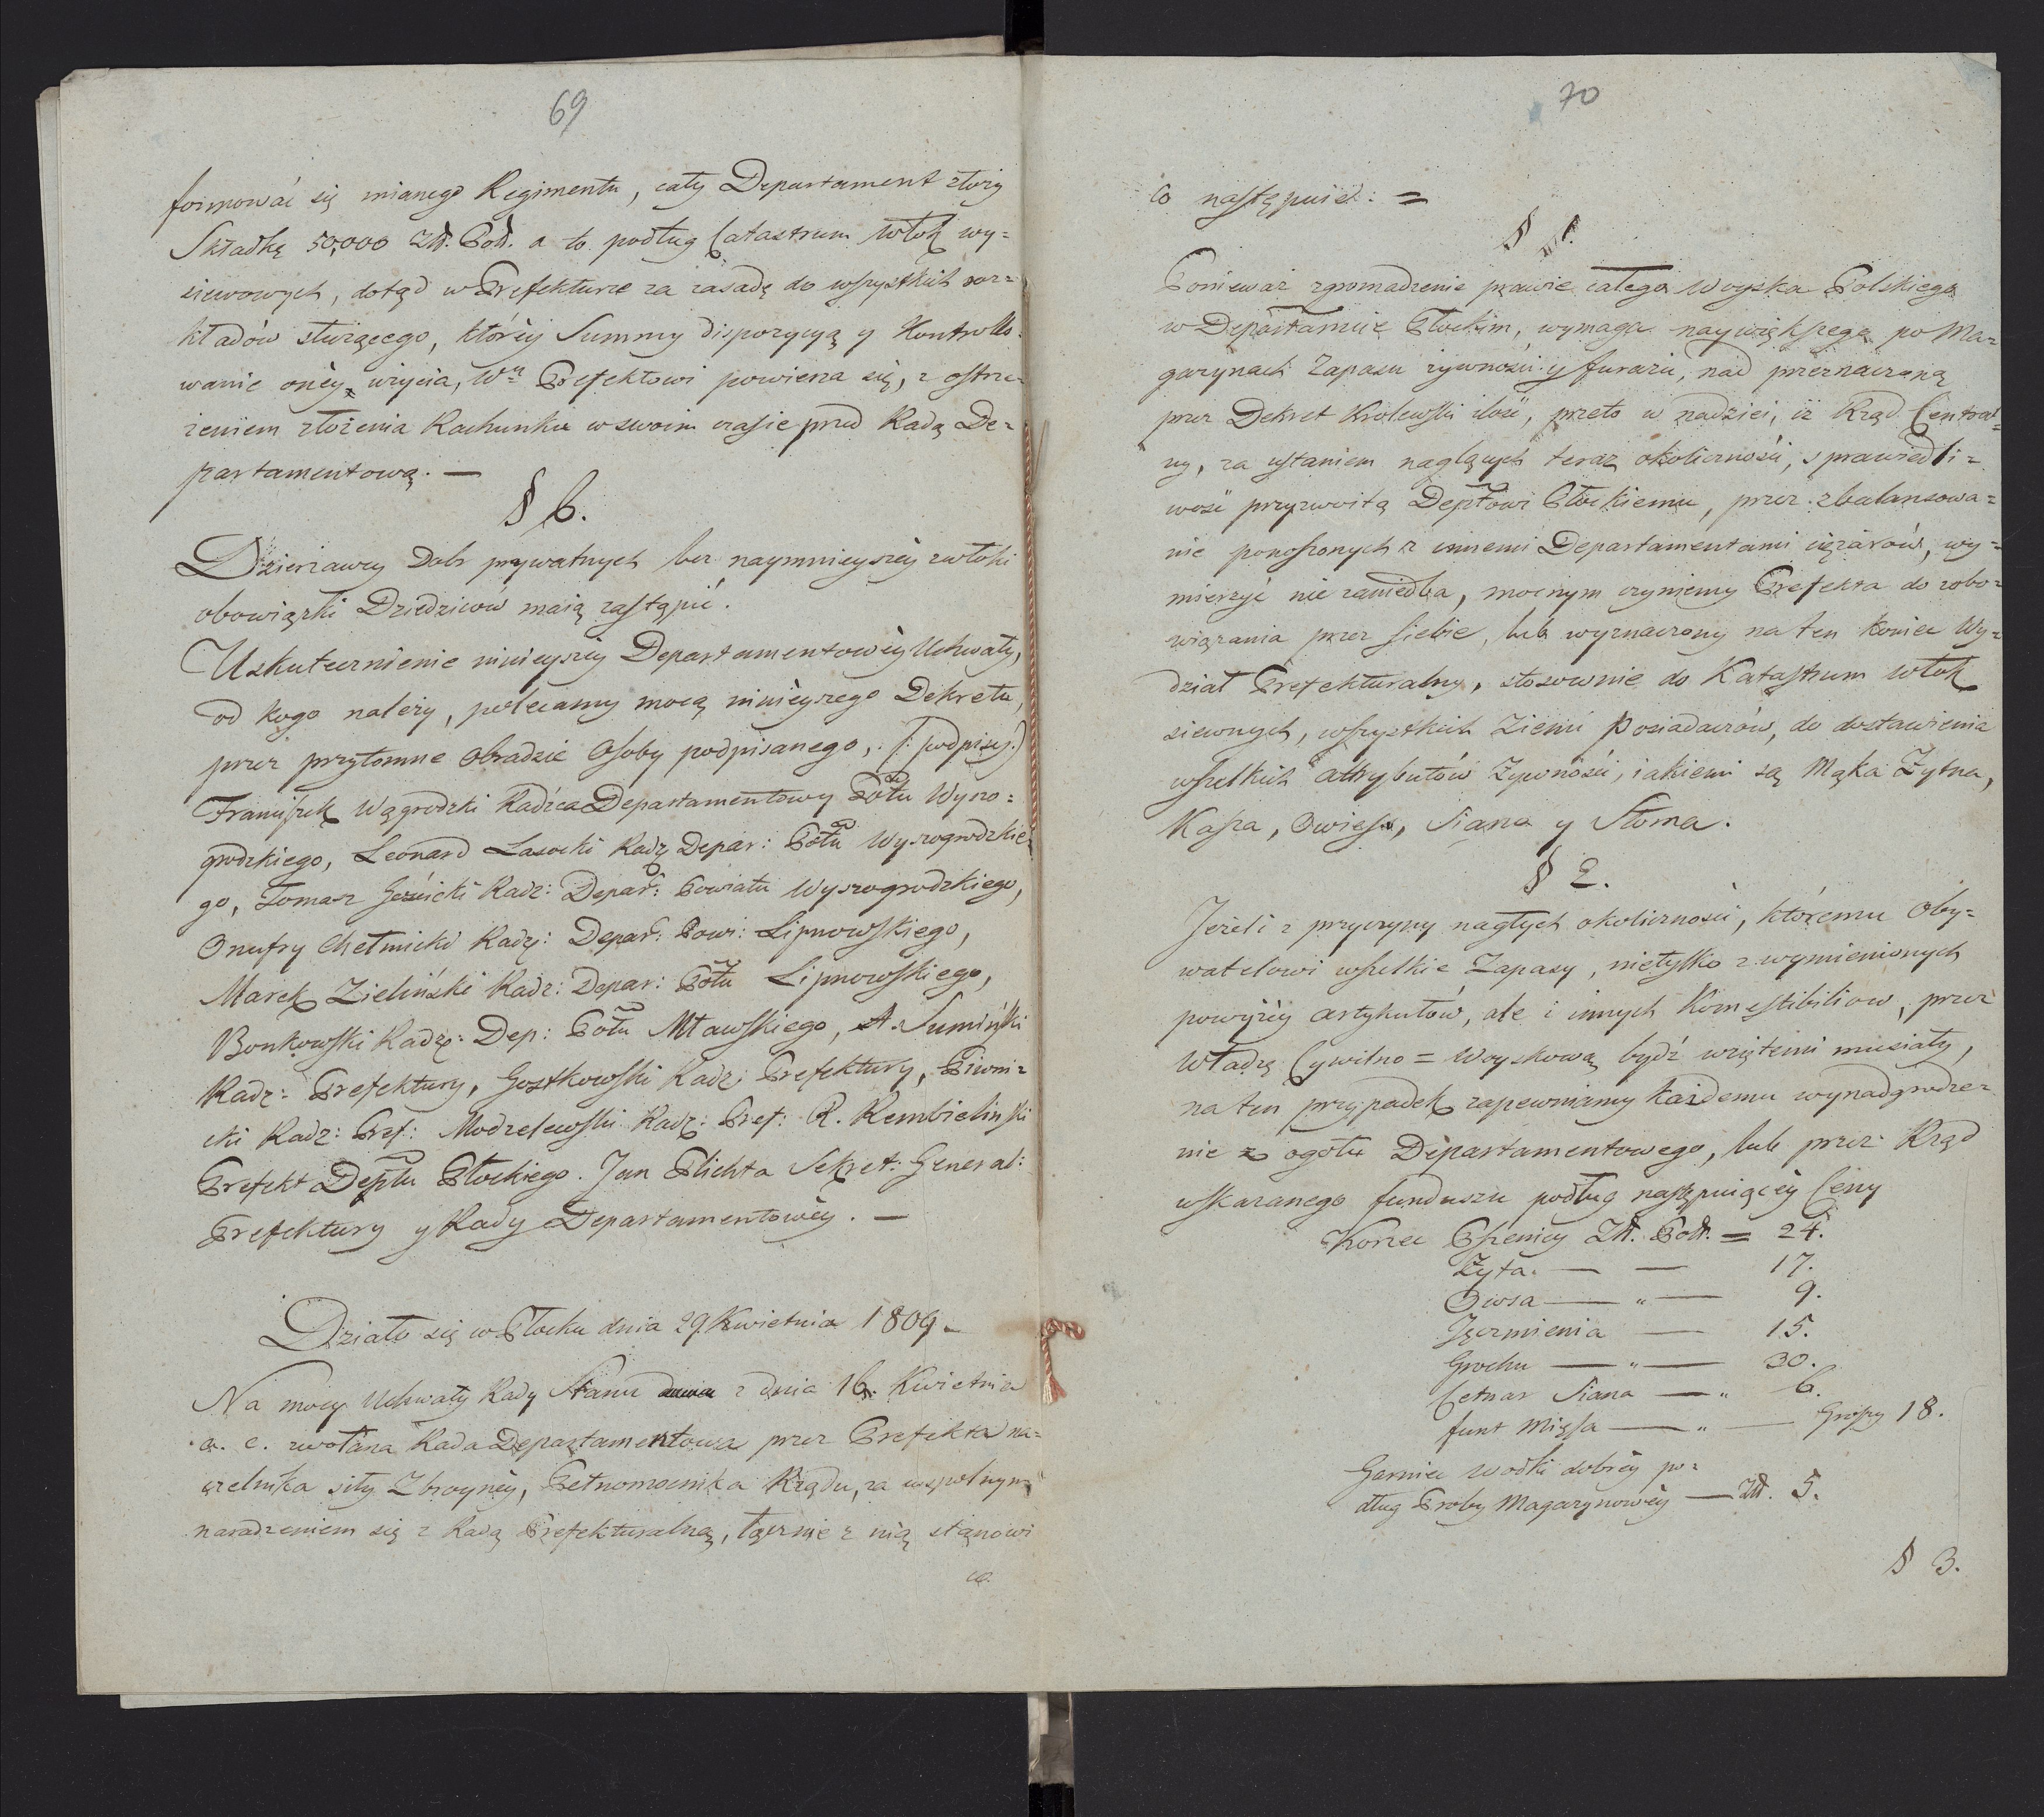 69
formować się mianego Regimentu, cały Departament złoży
Składkę 50,000 Zł. Pol. a to podług Catastrum Włok wy=
siewowych, dotąd w Prefekturze za zasadę do wszystkich roz=
kładów służącego, któréy Summy dispozycyą y Kontrollo=
wanie onéy użycia, Wu Prefektowi powierza się, z ostrze=
żeniem złożenia Rachunku w swoim czasie przed Radą De=
partamentową. —
§ 6.
Dzierżawcy Dobr prywatnych bez naymnieyszéy zwłoki
obowiązki Dziedziców maią zastąpić.
Uskutecznienie ninieyszéy Departamentowéy Uchwały,
od kogo należy, polecamy mocą ninieyszego Dekretu,
przez przytomne Obradzie Osoby podpisanego, (: podpisy:)
Franciszek Wągrodzki Radzca Departamentowy Pōtu Wyszo=
grodzkiego, Leonard Lasocki Radz Depar: Pōtu Wyszogrodzkie=
go, Tomasz Gościcki Radz: Depar: Powiatu Wyszogrodzkiego,
Onufry Chełmicki Radz: Depar: Powi: Lipnowskiego,
Marek Zieliński Radz: Depar: Pōtu Lipnowskiego,
Bonkowski Radz: Dep: Pōtu Mławskiego, A. Sumiński
Radz: Prefektury, Gostkowski Radz: Prefektury, Piwni=
cki Radz: Pref: Modzelewski Radz: Pref: R. Rembieliński
Prefekt Deptu Płockiego. Jan Plichta Sekret: General:
Prefektury y Rady Departamentowéy. —
Działo się w Płocku dnia 29 Kwietnia 1809 —
Na mocy Uchwały Rady Stanu z dnia 16. Kwietnia
a. c. zwołana Rada Departamentowa przez Prefekta na=
czelnika siły Zbroynéy, Pełnomocnika Rządu, za wspolnym
naradzeniem się z Radą Prefekturalną, łącznie z nią stanowi
co
70
co następuie: =
§ 1.
Ponieważ zgromadzenie prawie całego Woyska Polskiego
w Departamcie Płockim, wymaga naywiększego po Ma=
gazynach Zapasu żywności y furażu, nad przeznaczoną
przez Dekret Krolewski ilość, przeto w nadziei, iż Rząd Central=
ny, za ustaniem naglących teraz okoliczności, sprawiedli=
wość przyzwoitą Deptowi Płockiemu, przez zbalansowa=
nie ponoszonych z innemi Departamentami ciężarów, wy=
mierzyć nie zaniedba, mocnym czyniemy Prefekta do zobo=
wiązania przez siebie, lub wyznaczony na ten koniec Wy=
dział Prefekturalny, stosownie do Katastrum Włok
siewnych, wszystkich Ziemi Posiadaczów, do dostawienia
wszelkich attrybutów Żywności, iakiemi są Mąka Żytna,
Kasza, Owies, Siano y Słoma.
§ 2.
Jeżeli z przyczyny nagłych okoliczności, któremu Oby=
watelowi wszelkie Zapasy, nietylko z wymienionych
powyżéy artykułów, ale i innych Komestibiliow, przez
Władzę Cywilno = Woyskową bydź wziętemi musiały,
na ten przypadek zapewniamy każdemu wynadgrodze=
nie z ogółu Departamentowego, lub przez Rząd
wskazanego funduszu podług następuiącéy Ceny
Korzec Pszenicy Zł. Pol. = 24.
Żyta. — — 17.
Owsa — „ — 9.
Jęczmienia — 15.
Grochu — „ — 30.
Cetnar Siana — „ 6.
funt Mięsa — „ — Groszy 18.
Garniec Wodki dobréy po=
dług Proby Magazynowéy — Zł. 5.
§ 3.